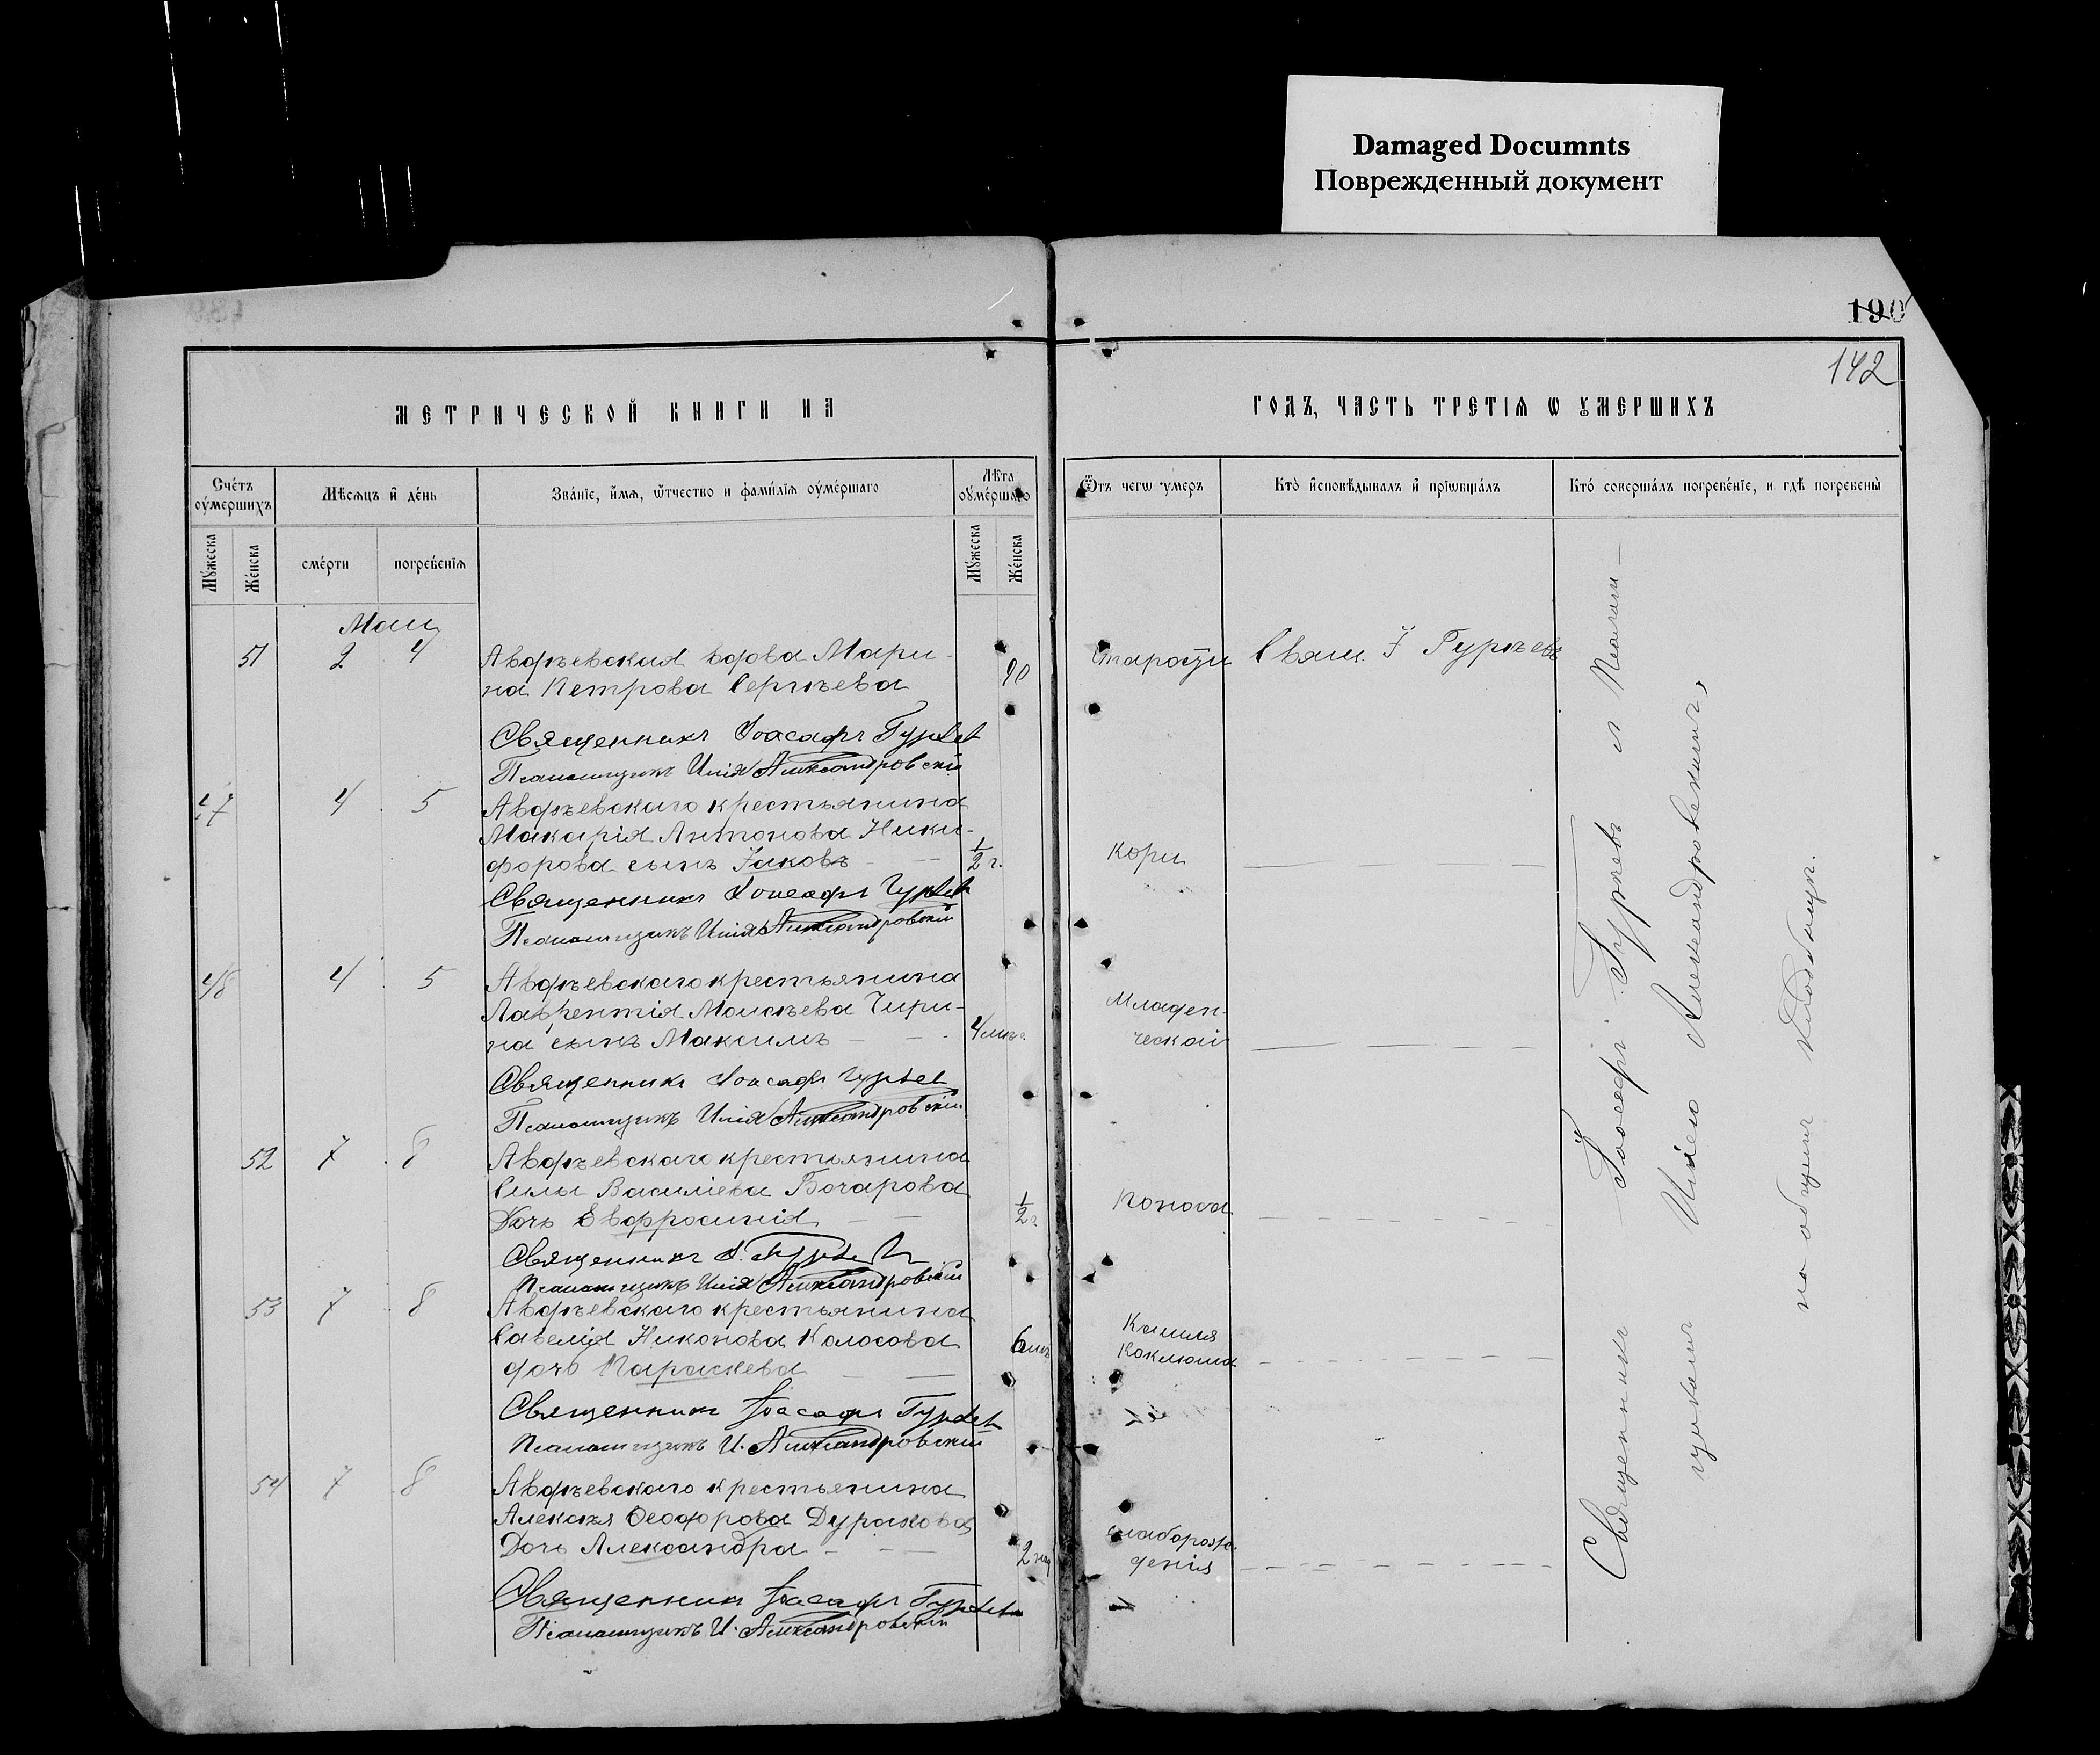 Damaged Documnts
Поврежденный документ
190
142
МЕТРИЧЕСКОЙ КНИГИ НА
ГОДЪ, ЧАСТЬ ТРЕТІѦ Ѡ ОУМЕРШИХЪ
Счетъ оумершихъ
Мѣсяцъ и день
Званіе, имя, отчество и фамилія оумершаго
Лѣта оумершаго
Отъ чегѡ умеръ
Кто исповѣдывалъ и пріѡбщалъ
Кто совершалъ погребеніе, и гдѣ погребены
Мужеска
Женска
смерти
погребенія
Мужеска
Женска
Маи
51 2 4 Авдѣевская вдова Мари-
на Петрова Сергѣева 90 старости Свящ. І Гурьевъ
Священникъ Іоасафъ Гурьевъ
Псаломщикъ Илія Александровскій
47 4 5 Авдѣевскаго крестьянина
Макарія Антонова Ники-
форова сынъ Іаковъ 1/2 г. кори
Священникъ Іоасафъ Гурьевъ
Псаломщикъ Илія Александровскій
48 4 5 Авдѣевскаго крестьянина
Лаврентія Моисѣева Чири-
на сынъ Максимъ 4 мѣс. Младен-
ческой
Священникъ Іоасафъ Гурьевъ
Псаломщикъ Илія Александровскій
52 7 8 Авдѣевскаго крестьянина
Силы Василіева Бочарова
Дочь Евфросинія 1/2 г. поноса
Священникъ І. Гурьевъ
Псаломщикъ Илія Александровскій
53 7 8 Авдѣевскаго крестьянина
Савелія Никонова Колосова
дочь Параскева 6 мѣ. Кашля
коклюша
Священникъ Іоасафъ Гурьевъ
Псаломщикъ И. Александровскій
54 7 8 Авдѣевскаго крестьянина
Алексѣя Ѳеодорова Дуракова
Дочь Александра 2 нед слаборож-
денія
Священникъ Іоасафъ Гурьевъ
Псаломщикъ И. Александровскій
Священникъ Іоасафъ Гурьевъ и Псалом-
щикомъ Иліею Александровскимъ,
на общемъ кладбищѣ.